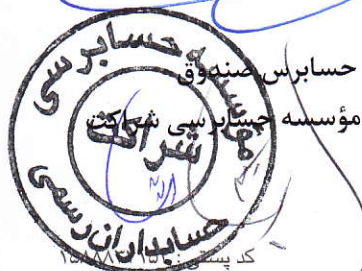 حسابرس صندوق
مؤسسه حسابرسی شراکت
مؤسسه حسابرسی
شراکت
حسابداران رسمی
کد پستی :